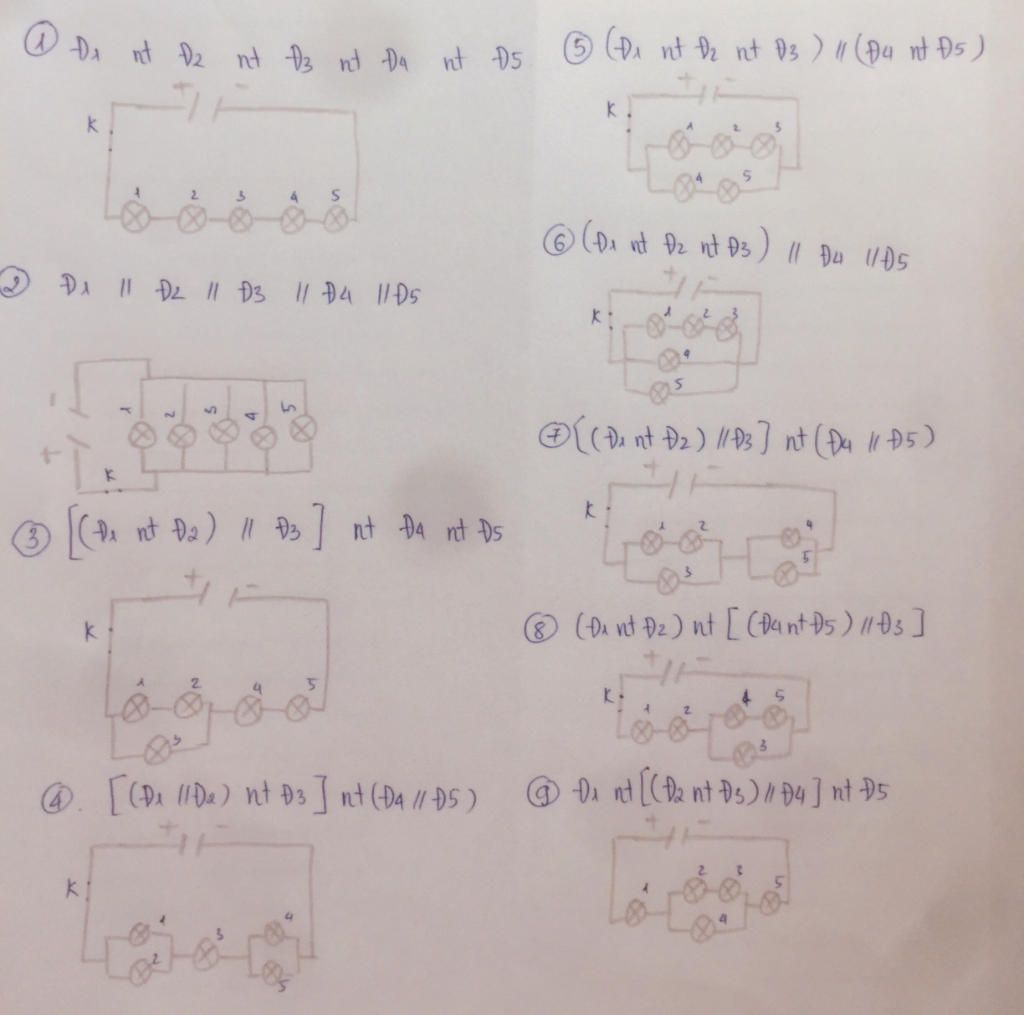 ① Đ1 nt Đ2 nt Đ3 nt Đ4 nt Đ5
+ -
K
1 2 3 4 5
② Đ1 // Đ2 // Đ3 // Đ4 // Đ5
-
1 2 3 4 5
+
K
③ [(Đ1 nt Đ2) // Đ3] nt Đ4 nt Đ5
+ -
K
1 2 4 5
3
④. [(Đ1 // Đ2) nt Đ3] nt (Đ4 // Đ5)
+ -
K
1 3 4
2 5
⑤ (Đ1 nt Đ2 nt Đ3) // (Đ4 nt Đ5)
+ -
K
1 2 3
4 5
⑥ (Đ1 nt Đ2 nt Đ3) // Đ4 // Đ5
+ -
K
1 2 3
4
5
⑦ [(Đ1 nt Đ2) // Đ3] nt (Đ4 // Đ5)
+ -
K
1 2 4
3 5
⑧ (Đ1 nt Đ2) nt [(Đ4 nt Đ5) // Đ3]
+ -
K
1 2 4 5
3
⑨ Đ1 nt [(Đ2 nt Đ3) // Đ4] nt Đ5
+ -
1 2 3 5
4